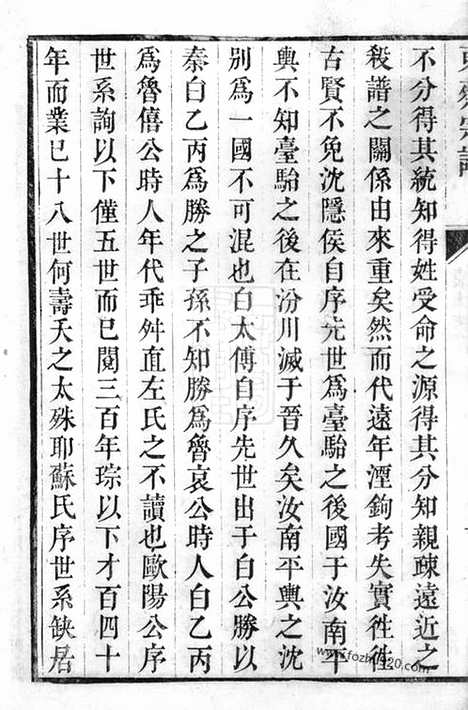 不分得其統知得姓受命之源得其分知親疎遠近之
殺譜之關係由來重矣然而代遠年湮鉤考失實徃徃
古賢不免沈隱侯自序先世爲臺駘之後國于汝南平
輿不知臺駘之後在汾川滅于晉久矣汝南平輿之沈
別爲一國不可混也白太傅自序先世出于白公勝以
秦白乙丙爲勝之子孫不知勝爲魯哀公時人白乙丙
爲魯僖公時人年代乖舛直左氏之不讀也歐陽公序
世系詢以下僅五世而已閱三百年琮以下才百四十
年而業已十八世何壽夭之太殊耶蘇氏序世系缺居
www.fozhu920.com